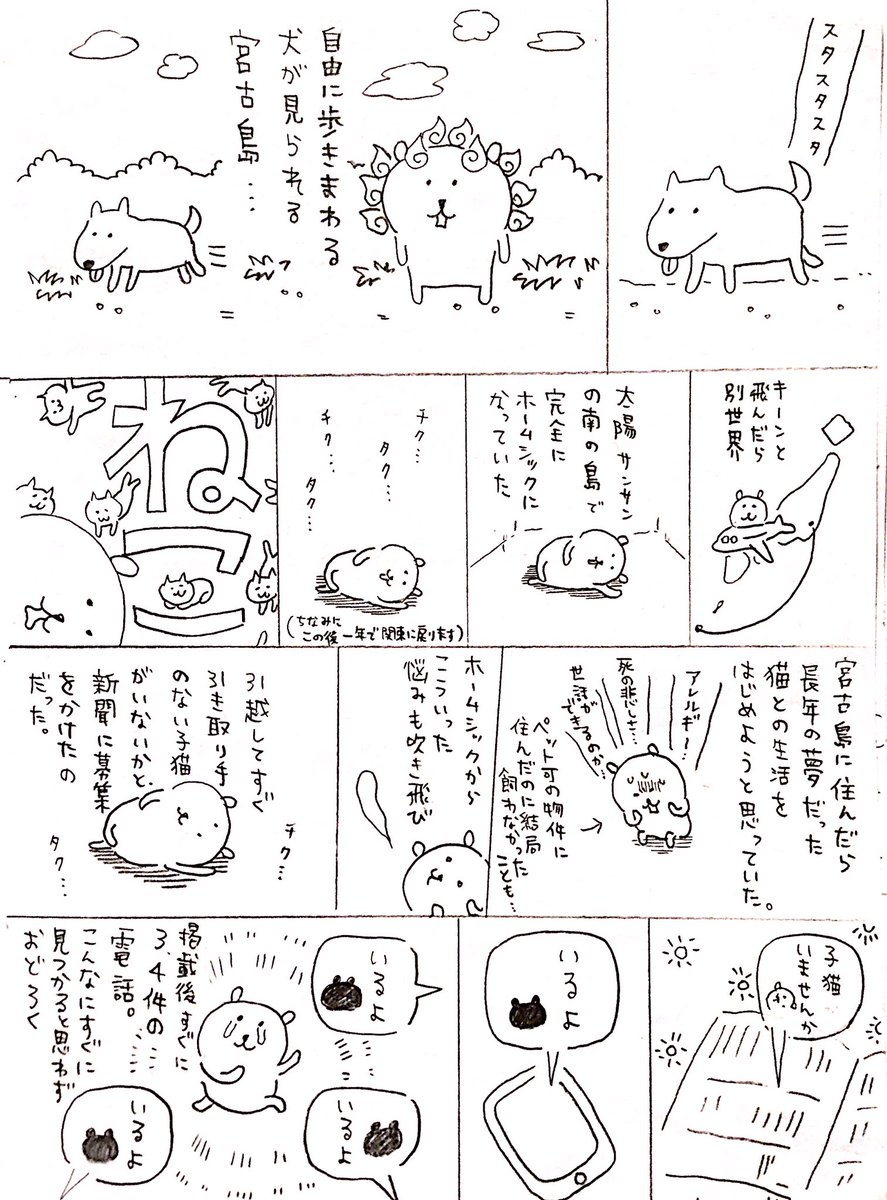 スタスタスタ
自由に歩きまわる
犬が見られる
宮古島…
キーンと
飛んだら
別世界
太陽サンサン
の南の島で
完全に
ホームシックに
なっていた
チク…
タク…
チク…
タク…
(ちなみに
この後一年で関東に戻ります)
ねこ
宮古島に住んだら
長年の夢だった
猫との生活を
はじめようと思っていた。
アレルギー…
死の悲しさ…
世話が
できるのか…
ペット可の物件に
住んだのに結局
飼わなかった
ことも…
ホームシックから
こういった
悩みも吹き飛び
引越してすぐ
引き取り手
のない子猫
がいないかと、
新聞に募集
をかけたの
だった。
チク…
タク…
子猫
いませんか
いるよ
いるよ
いるよ
いるよ
掲載後すぐに
3、4件の
電話。
こんなにすぐに
見つかると思わず
おどろく